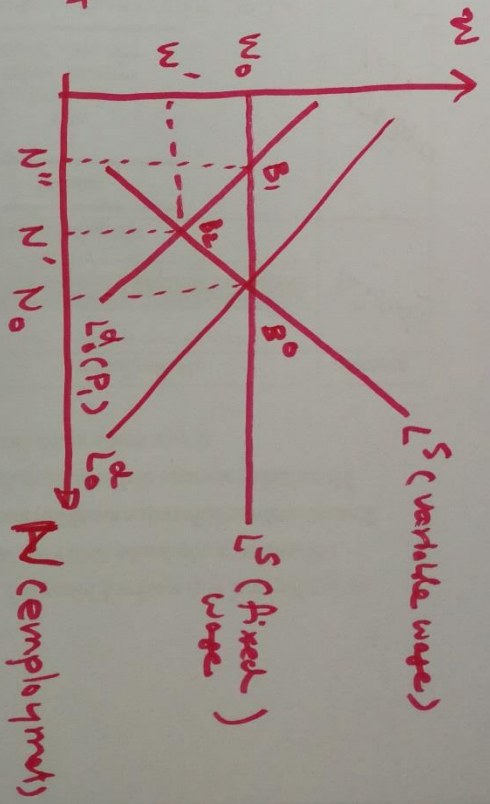 W
W₀
W'
N''
N'
N₀
B₁
B₂
B⁰
L₀ᵈ(P₁)
L₀ᵈ
Lˢ (variable wage)
Lˢ (fixed
wage )
N (employment)